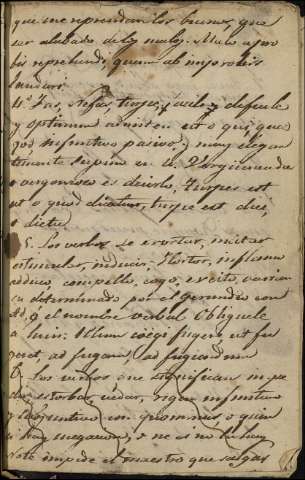 que me reprendan los buenos, que
ser alabado de los malos. Malo a pro
bis reprehendi, quam ab improbis
laudari.
4. Fas, nefas, turpe, facile, y dificile
y optimum admiten ut o qui que
quod infinitivo pasivo, y muy elegan
temente supino en u. Vergüenza
o vergonzoso es decirlo, turpe est
ut o quod dicatur, turpe est dici,
o dictu
5. Los verbos de exortar, incitar
estimular, inducir, Hortor, inflamo
adduco, compello, cogo, excito, varian
su determinado por el gerundio con
Ad, y el nombre verbal Obliguele
a huir: Illum coëgi fugere ut fu
geret, ad fugam, ad fugiendum
6. Los verbos que significan impe
dir, estorbar, vedar, rigen infinitivo
y subjuntivo con quominus o quin
si hay negacion, o ne si no la hay
te impide el maestro que salgas